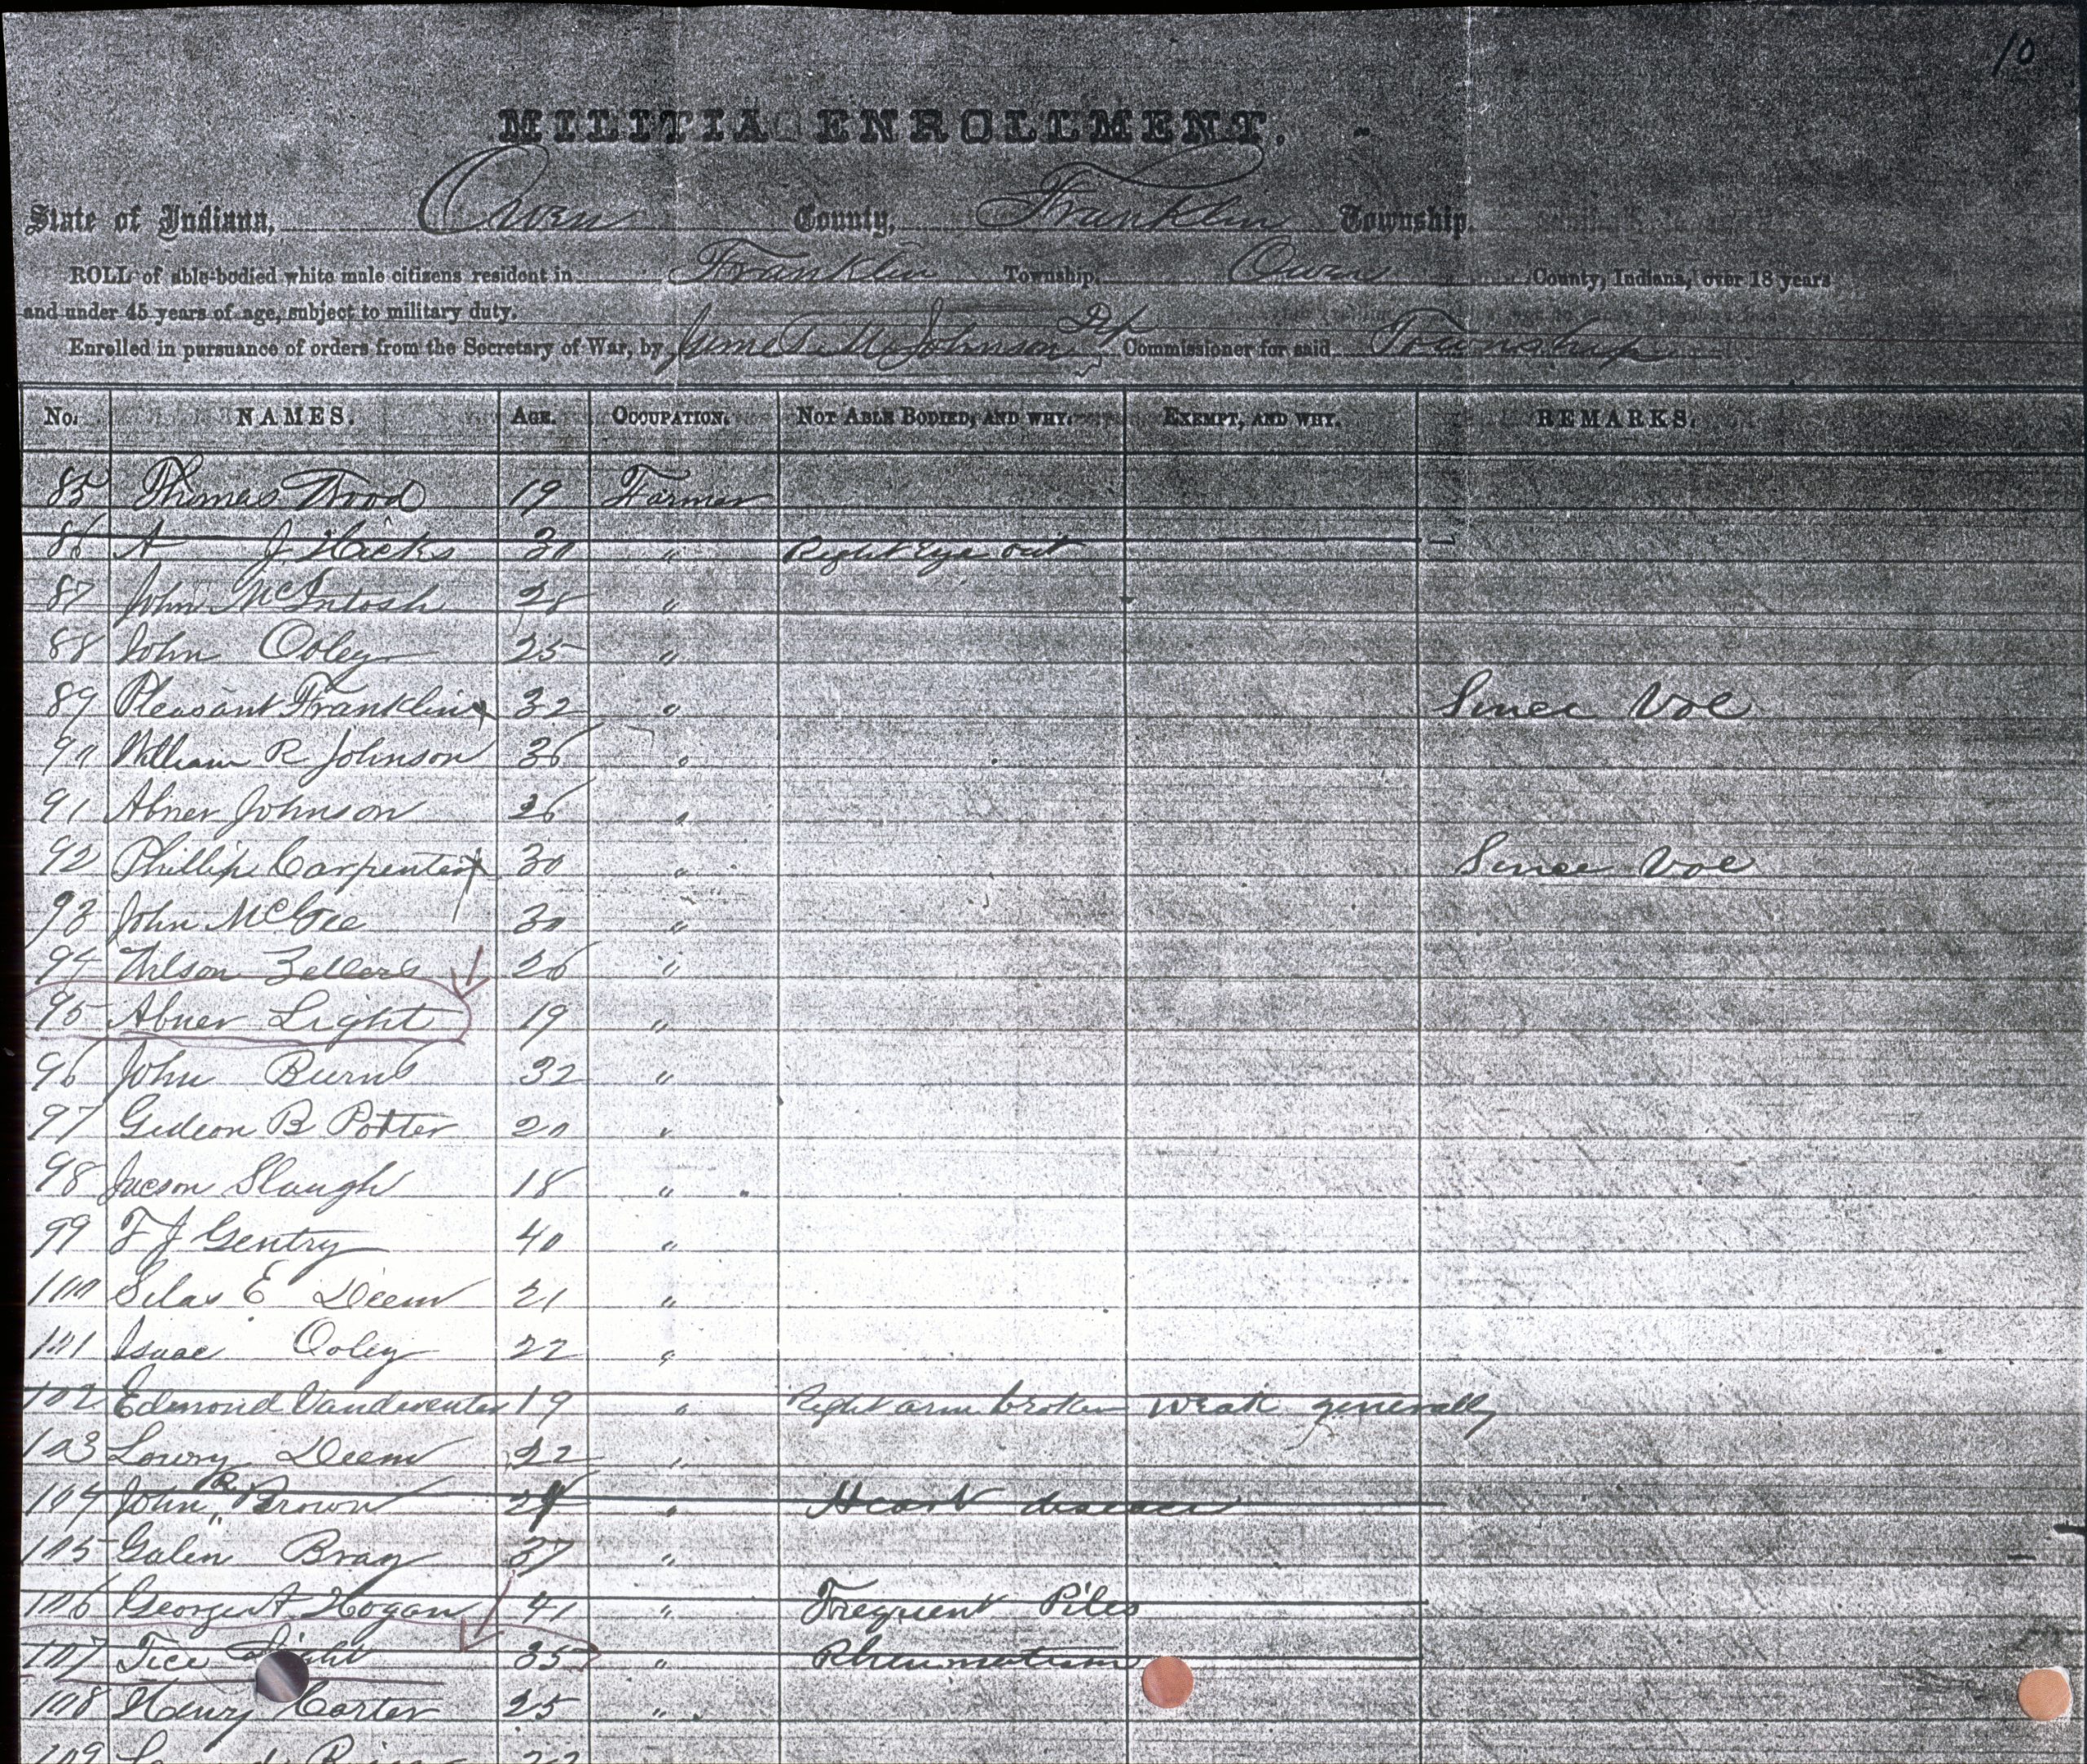 10
MILITIA ENROLLMENT.
State of Indiana, Owen County, Franklin Township.
ROLL of able-bodied white male citizens resident in Franklin Township, Owen County, Indiana, over 18 years
and under 45 years of age, subject to military duty.
Enrolled in pursuance of orders from the Secretary of War, by Johnson Dep Commissioner for said Township
No. NAMES. AGE. OCCUPATION. NOT ABLE BODIED, AND WHY. EXEMPT, AND WHY. REMARKS.
85 Thomas Wood 19 Farmer
86 A J Hicks 30 " Right Eye out
87 John McIntosh 28 "
88 John Ooley 25 "
89 Pleasant Franklin x 32 " Since Vol
90 William R Johnson 36 "
91 Abner Johnson 26 "
92 Phillip Carpenter x 30 " Since Vol
93 John McGee 30 "
94 Wilson Zellers 26 "
95 Abner Light 19 "
96 John Burns 32 "
97 Gideon B Potter 20 "
98 Jacson Slaugh 18 "
99 F J Gentry 40 "
100 Silas E Deem 21 "
101 Isaac Ooley 22 "
102 Edmond Vandeventer 19 " Right arm broken weak generally
103 Lowry Deem 22 "
104 John R Brown 24 " Heart disease
105 Galen Bray 37 "
106 George A Hogan 41 " Frequent Piles
107 Tice Light 35 " Rheumatism
108 Henry Carter 25 "
109